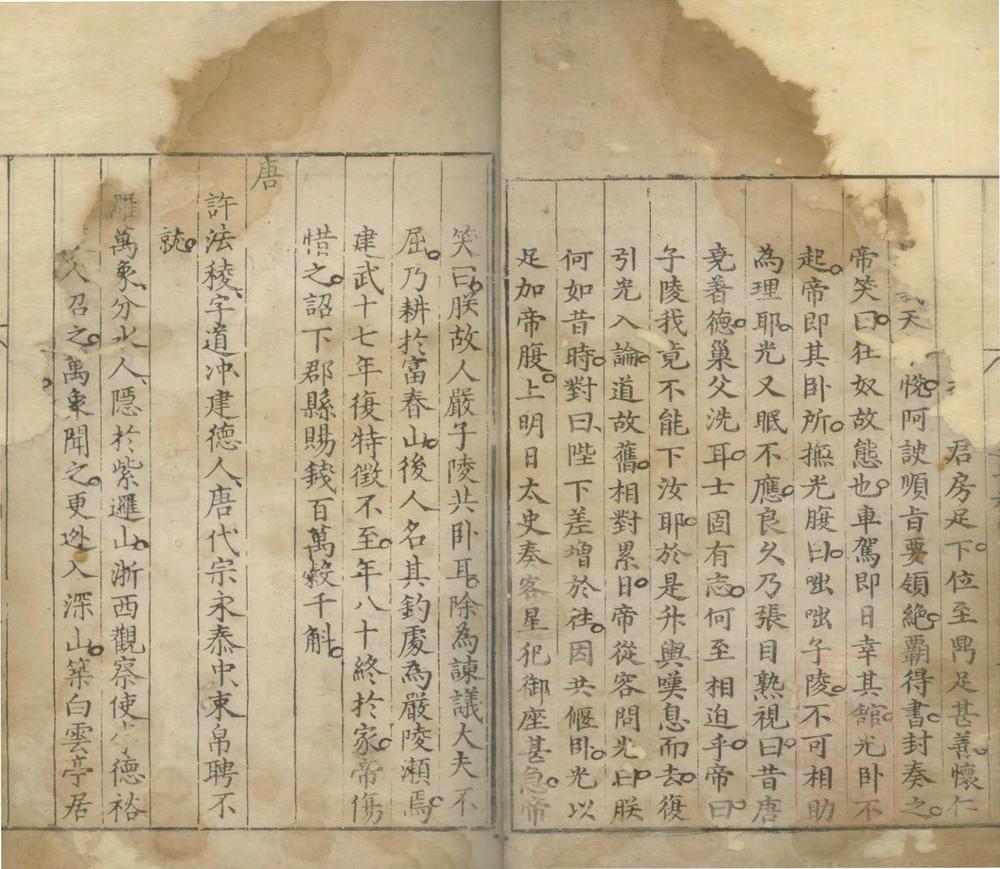 君房足下位至鼎足甚善懷仁
天悅阿諛順旨要領絕霸得書封奏之
帝笑曰狂奴故態也車駕即日幸其館光卧不
起帝即其卧所撫光腹曰咄咄子陵不可相助
為理耶光又眠不應良久乃張目熟視曰昔唐
堯著德巢父洗耳士固有志何至相迫乎帝曰
子陵我竟不能下汝耶於是升輿嘆息而去復
引光入論道故舊相對累日帝從容問光曰朕
何如昔時對曰陛下差增於往因共偃卧光以
足加帝腹上明日太史奏客星犯御座甚急帝
笑曰朕故人嚴子陵共卧耳除為諫議大夫不
屈乃耕於富春山後人名其釣處為嚴陵瀨焉
建武十七年復特徵不至年八十終於家帝傷
惜之詔下郡縣賜錢百萬穀千斛
唐
許法稜字道冲建德人唐代宗永泰中束帛聘不
就
羅萬象分水人隱於紫邏山浙西觀察使李德裕
召之萬象聞之更迯入深山築白雲亭居